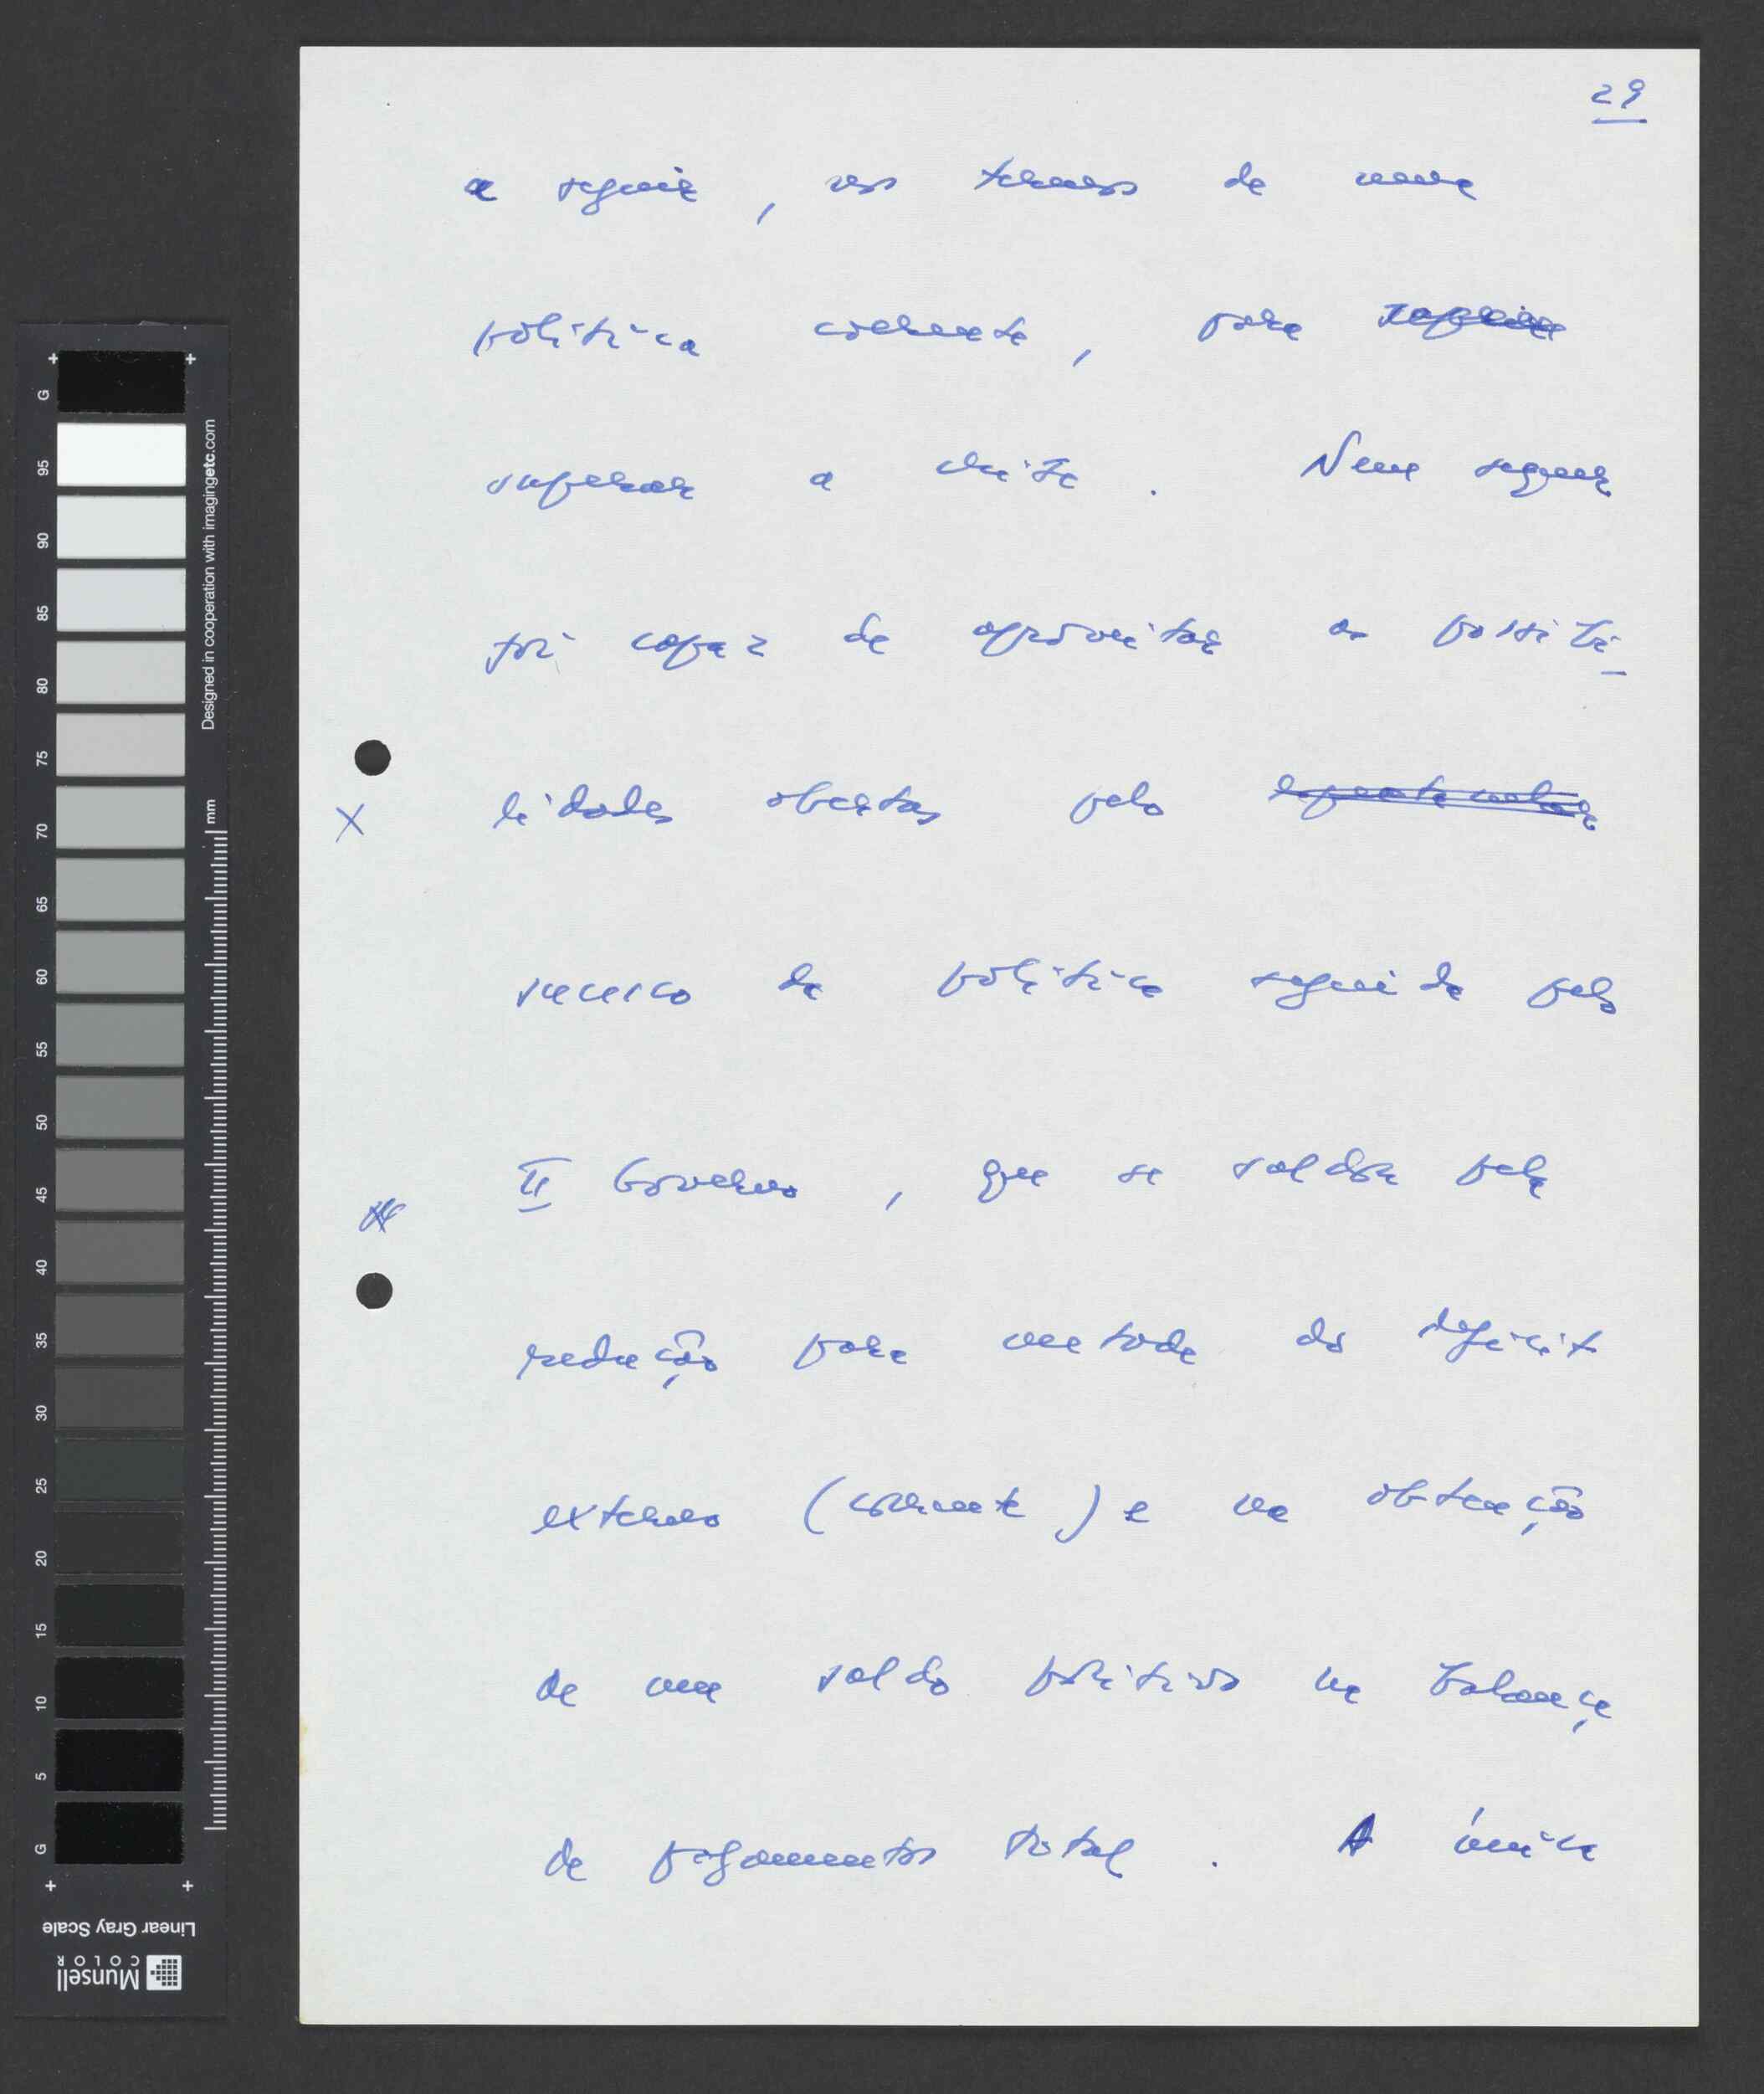 29
a seguir, nos termos de uma
política coerente, para
superar a crise. Nem sequer
foi capaz de aproveitar as possibi-
X lidades abertas pelo
sucesso da política seguida pelo
II Governo, que se saldou pela
redução para metade do deficit
externo (corrente) e na obtenção
de um saldo positivo na balança
de pagamentos total. A única
G 95 90 85 80 75 70 65 60 55 50 45 40 35 30 25 20 15 10 5 G
Designed in cooperation with imagingetc.com
mm
Linear Gray Scale
Munsell
COLOR